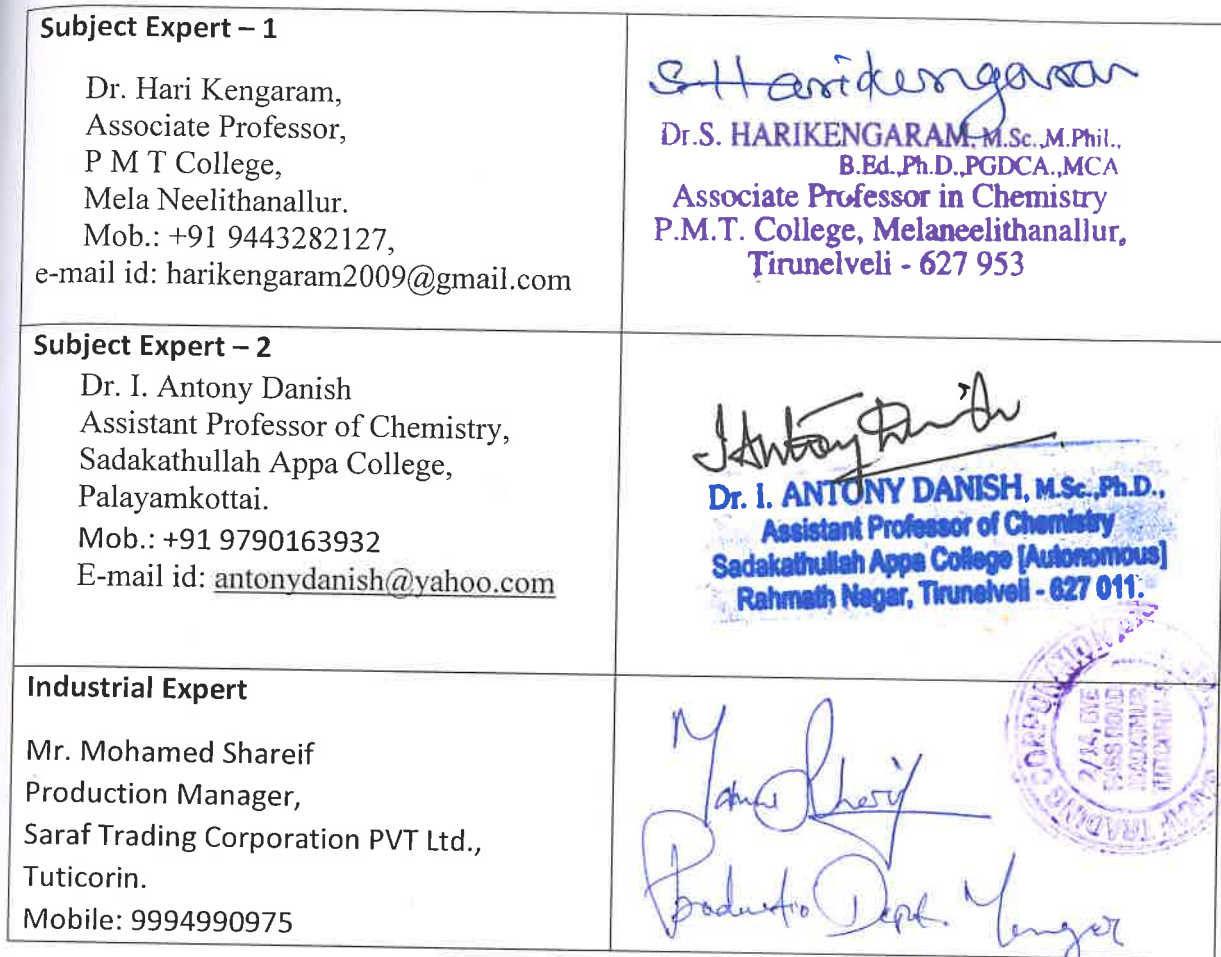 Subject Expert – 1
Dr. Hari Kengaram,
Associate Professor,
P M T College,
Mela Neelithanallur.
Mob.: +91 9443282127,
e-mail id: harikengaram2009@gmail.com
S Harikengaram
Dr.S. HARIKENGARAM, M.Sc.,M.Phil.,
B.Ed.,Ph.D.,PGDCA.,MCA
Associate Professor in Chemistry
P.M.T. College, Melaneelithanallur,
Tirunelveli - 627 953
Subject Expert – 2
Dr. I. Antony Danish
Assistant Professor of Chemistry,
Sadakathullah Appa College,
Palayamkottai.
Mob.: +91 9790163932
E-mail id: antonydanish@yahoo.com
I Antony Danish
Dr. I. ANTONY DANISH, M.Sc.,Ph.D.,
Assistant Professor of Chemistry
Sadakathullah Appa College [Autonomous]
Rahmath Nagar, Tirunelveli - 627 011.
Industrial Expert
Mr. Mohamed Shareif
Production Manager,
Saraf Trading Corporation PVT Ltd.,
Tuticorin.
Mobile: 9994990975
TRADING CORPORATION